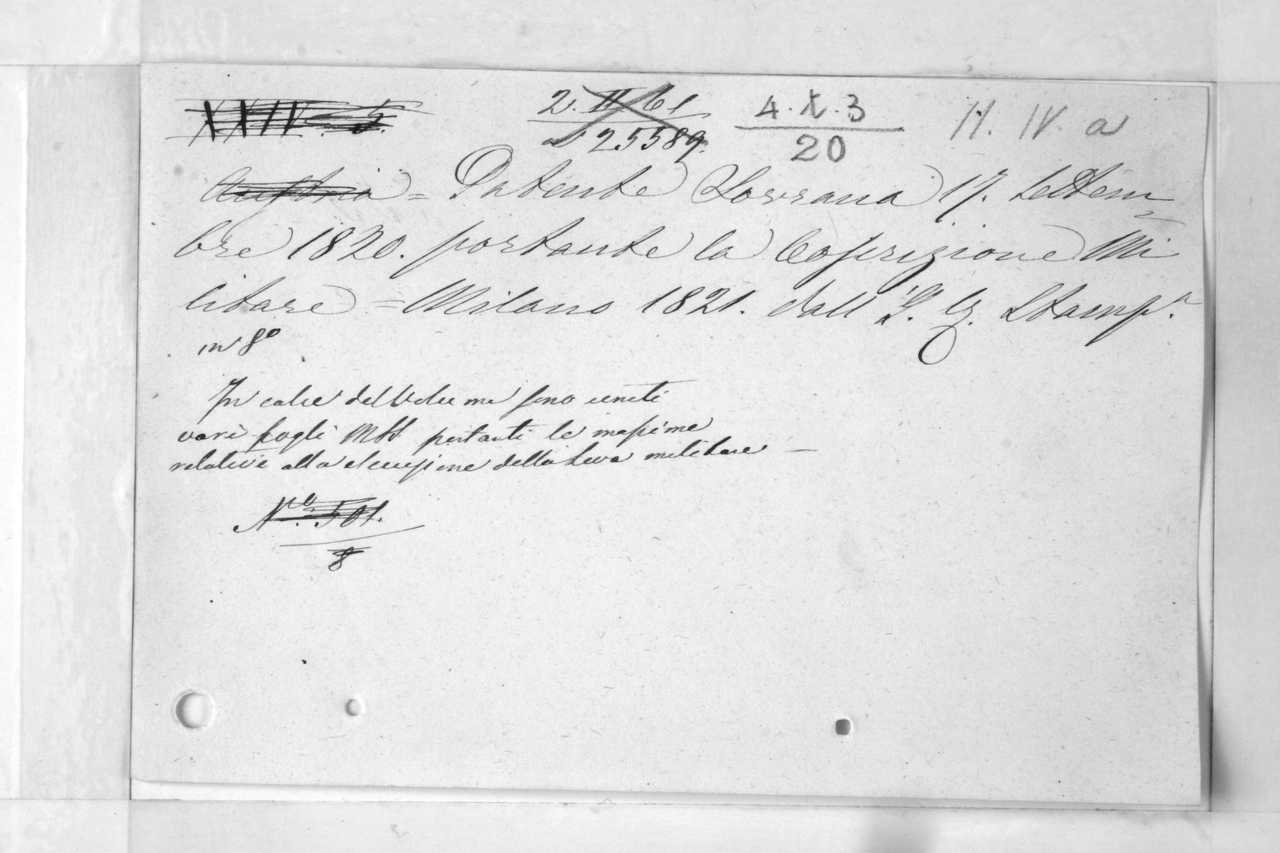 XXIV 5. 2. II 61 4. X. 3 H. IV. a
25589. 20
Austria = Patente Sovrana 17. Settem=
bre 1820. portante la Coscrizione Mi
litare = Milano 1821. dall' I. R. Stamp.a
in 8o
In calce del Volume sono uniti
vari fogli MSS portanti le massime
relative alla elezione della Leva militare —
No. 501.
8